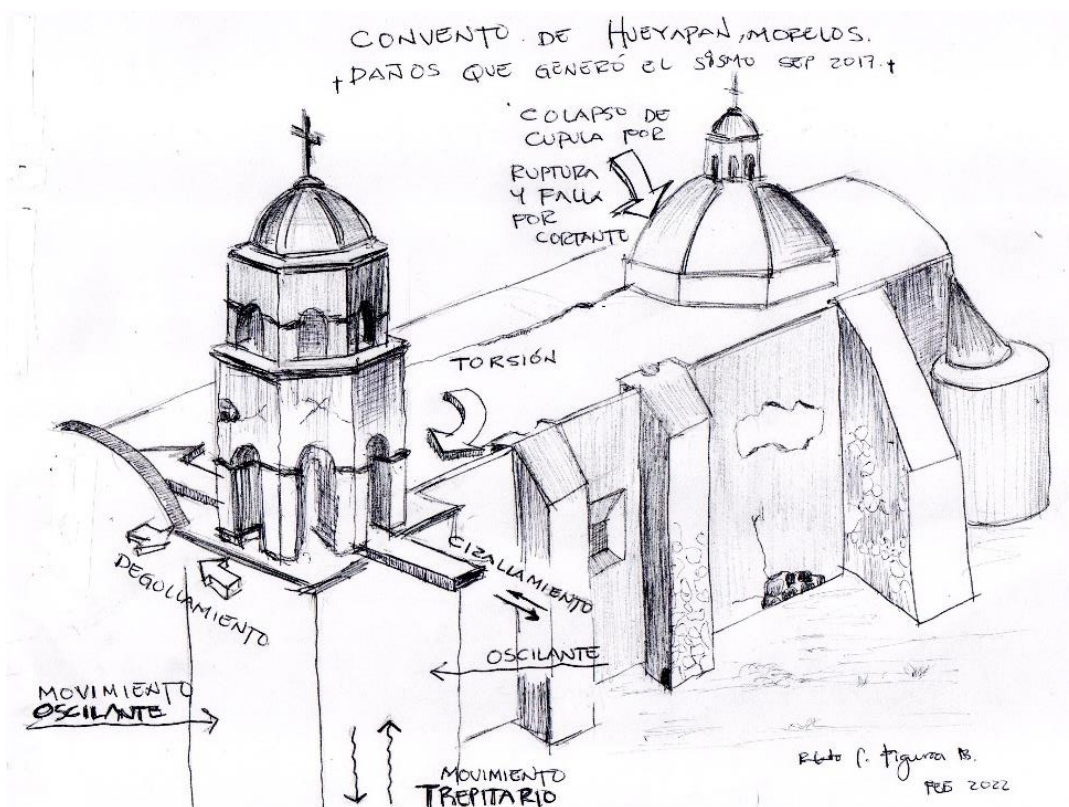 CONVENTO DE HUEYAPAN, MORELOS.
DAÑOS QUE GENERÓ EL SISMO SEP 2017.
COLAPSO DE
CUPULA POR
RUPTURA
Y FALLA
POR
CORTANTE
TORSIÓN
CIZALLAMIENTO
DEGOLLAMIENTO
OSCILANTE
MOVIMIENTO
OSCILANTE
MOVIMIENTO
TREPITARIO
Figueroa B.
FEB 2022